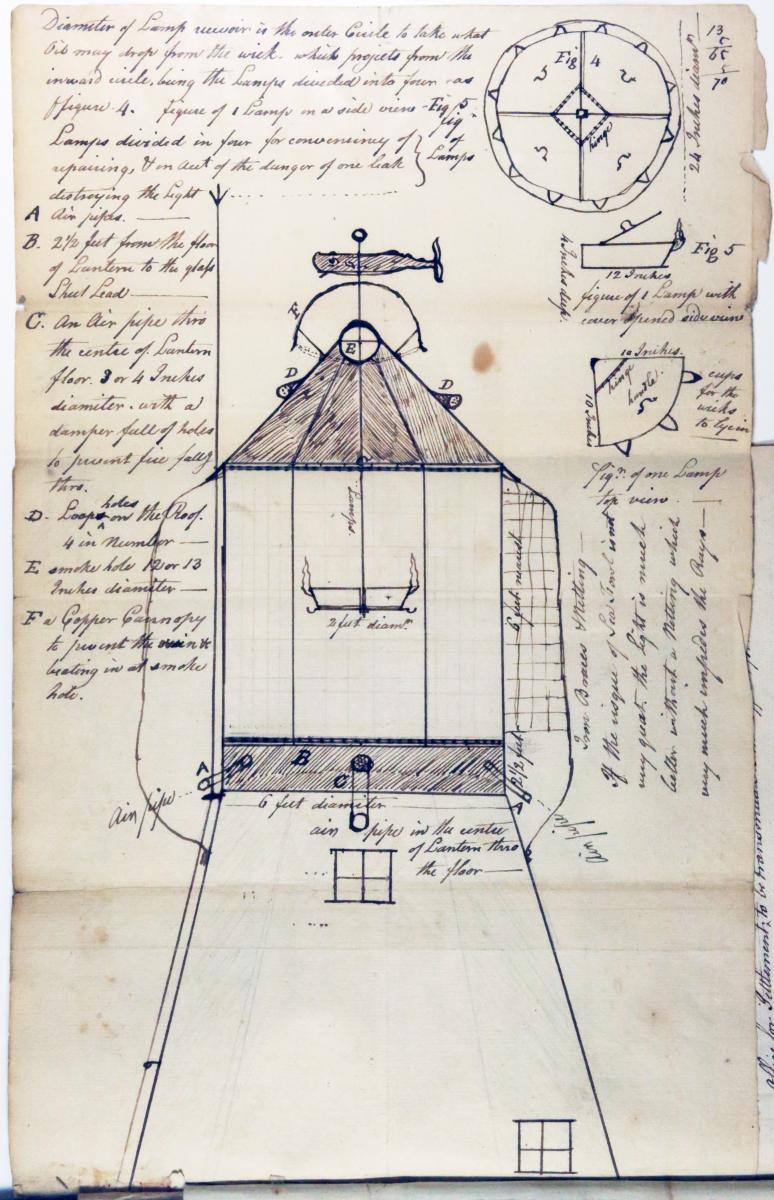 Diameter of Lamp recevoir is the outer Circle to take what
Oil may drop from the wick. which projects from the
inward circle, being the Lamps divided into four as
figure 4. figure of 1 Lamp on a side view - Fig 5
Lamps divided in four for conveniency of
repairing, & on acct of the danger of one leak
destroying the Light
fig
of
Lamps
A Air pipes.
B. 2½ feet from the floor
of Lantern to the glass
Sheet Lead
C. An Air pipe thro
the centre of Lantern
floor. 3 or 4 Inches
diameter. with a
damper full of holes
to prevent fire fallg
thro.
D. Loop holes on the Roof.
4 in Number
E smoke hole 12 or 13
Inches diameter
F a Copper Cannopy
to prevent the rain &
beating in at smoke
hole.
Fig 4
5
5
5
5
hinge
24 Inches diamr
13
65
70
4 Inches deep.
12 Inches
Fig 5
figure of 1 Lamp with
cover opened side view
10 Inches.
10 Inches
hinge
handle.
5
cups
for the
wicks
to lye in
Figr. of one Lamp
top view.
F
E
D
D
Lamps
2 feet diamr.
6 feet
2½ feet
Iron Braces & Netting
If the risque of Sea Fowl is not
very great. the light is much
better without a Netting which
very much impedes the Rays
A
B
C
A
Air pipe
6 feet diameter
air pipe in the centre
of Lantern thro
the floor
Air pipe
for Settlement, to be